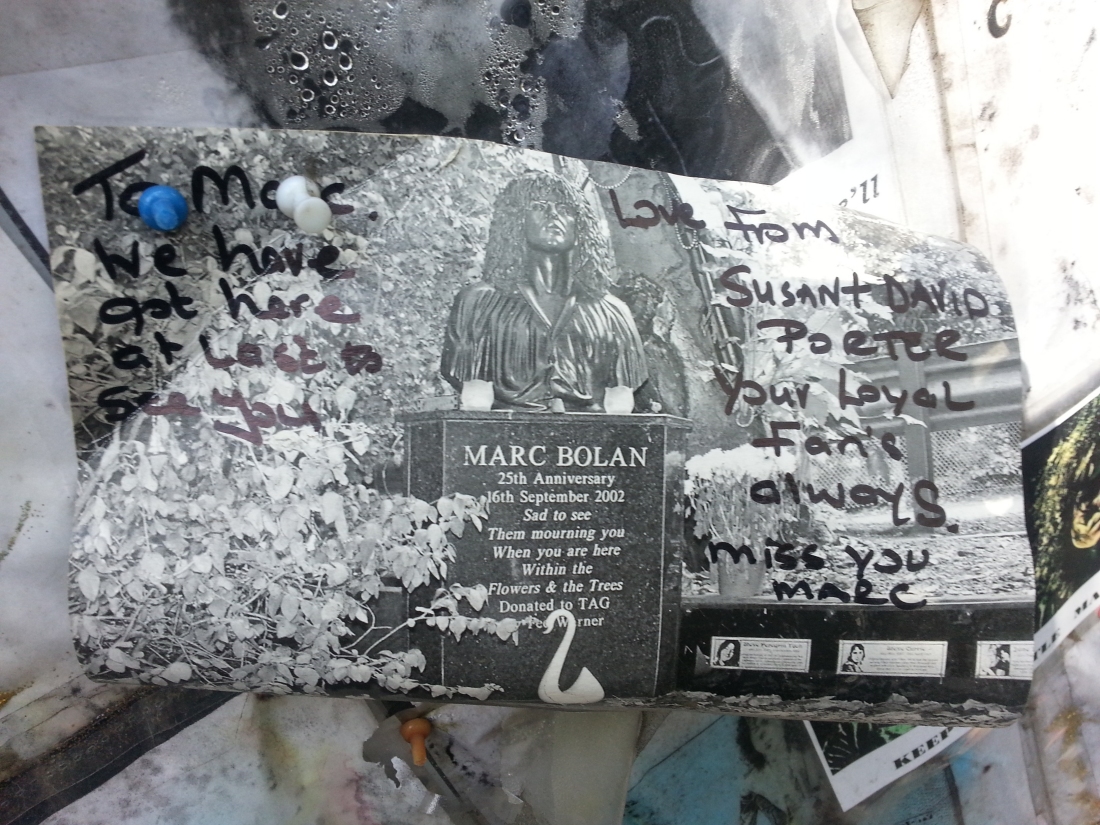 To Marc.
We have
got here
at Last to
see you
Love from
SUSAN + DAVID
PORTER
your Loyal
Fan's
always.
miss you
MARC
MARC BOLAN
25th Anniversary
16th September 2002
Sad to see
Them mourning you
When you are here
Within the
Flowers & the Trees
Donated to TAG
Warner
'11
KEEP